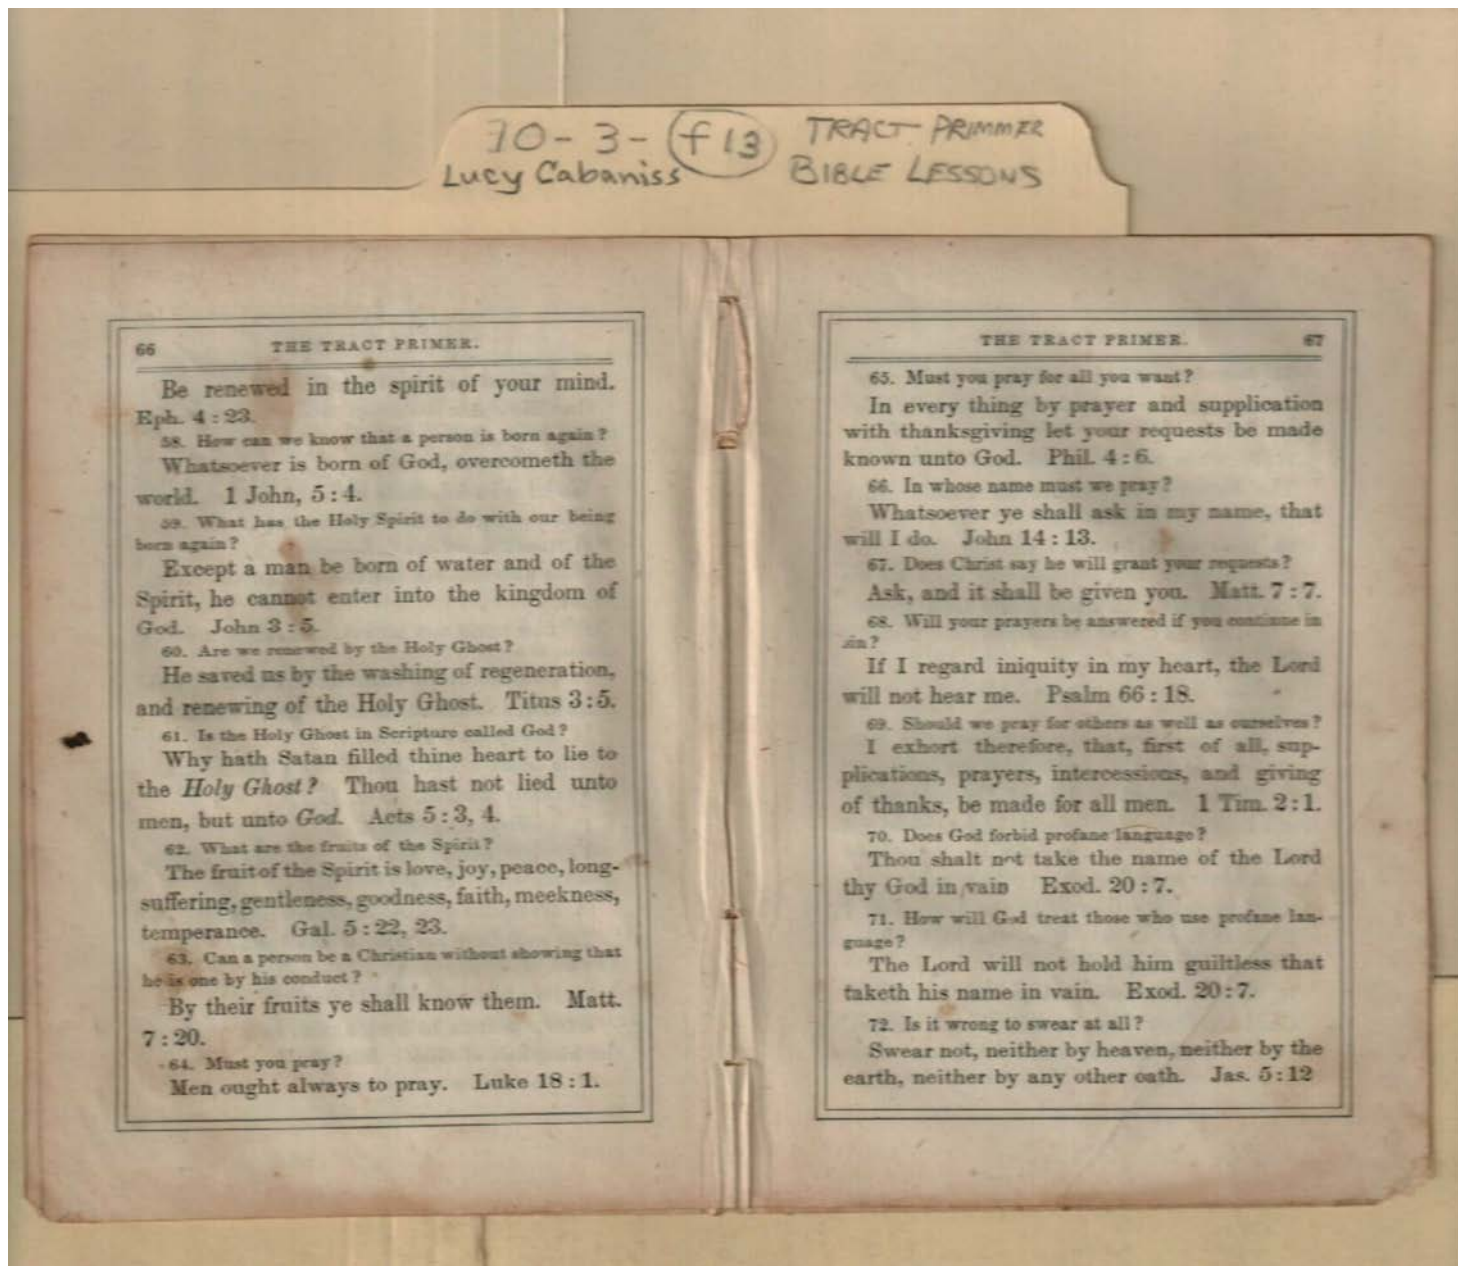 70-3-f13 TRACT PRIMMER
Lucy Cabaniss BIBLE LESSONS
66 THE TRACT PRIMER.
Be renewed in the spirit of your mind.
Eph. 4 : 23.
58. How can we know that a person is born again?
Whatsoever is born of God, overcometh the
world. 1 John, 5 : 4.
59. What has the Holy Spirit to do with our being
born again?
Except a man be born of water and of the
Spirit, he cannot enter into the kingdom of
God. John 3 : 5.
60. Are we renewed by the Holy Ghost?
He saved us by the washing of regeneration,
and renewing of the Holy Ghost. Titus 3 : 5.
61. Is the Holy Ghost in Scripture called God?
Why hath Satan filled thine heart to lie to
the Holy Ghost? Thou hast not lied unto
men, but unto God. Acts 5 : 3, 4.
62. What are the fruits of the Spirit?
The fruit of the Spirit is love, joy, peace, long-
suffering, gentleness, goodness, faith, meekness,
temperance. Gal. 5 : 22, 23.
63. Can a person be a Christian without showing that
he is one by his conduct?
By their fruits ye shall know them. Matt.
7 : 20.
64. Must you pray?
Men ought always to pray. Luke 18 : 1.
THE TRACT PRIMER. 67
65. Must you pray for all you want?
In every thing by prayer and supplication
with thanksgiving let your requests be made
known unto God. Phil. 4 : 6.
66. In whose name must we pray?
Whatsoever ye shall ask in my name, that
will I do. John 14 : 13.
67. Does Christ say he will grant your requests?
Ask, and it shall be given you. Matt. 7 : 7.
68. Will your prayers be answered if you continue in
sin?
If I regard iniquity in my heart, the Lord
will not hear me. Psalm 66 : 18.
69. Should we pray for others as well as ourselves?
I exhort therefore, that, first of all, sup-
plications, prayers, intercessions, and giving
of thanks, be made for all men. 1 Tim. 2 : 1.
70. Does God forbid profane language?
Thou shalt not take the name of the Lord
thy God in vain Exod. 20 : 7.
71. How will God treat those who use profane lan-
guage?
The Lord will not hold him guiltless that
taketh his name in vain. Exod. 20 : 7.
72. Is it wrong to swear at all?
Swear not, neither by heaven, neither by the
earth, neither by any other oath. Jas. 5 : 12